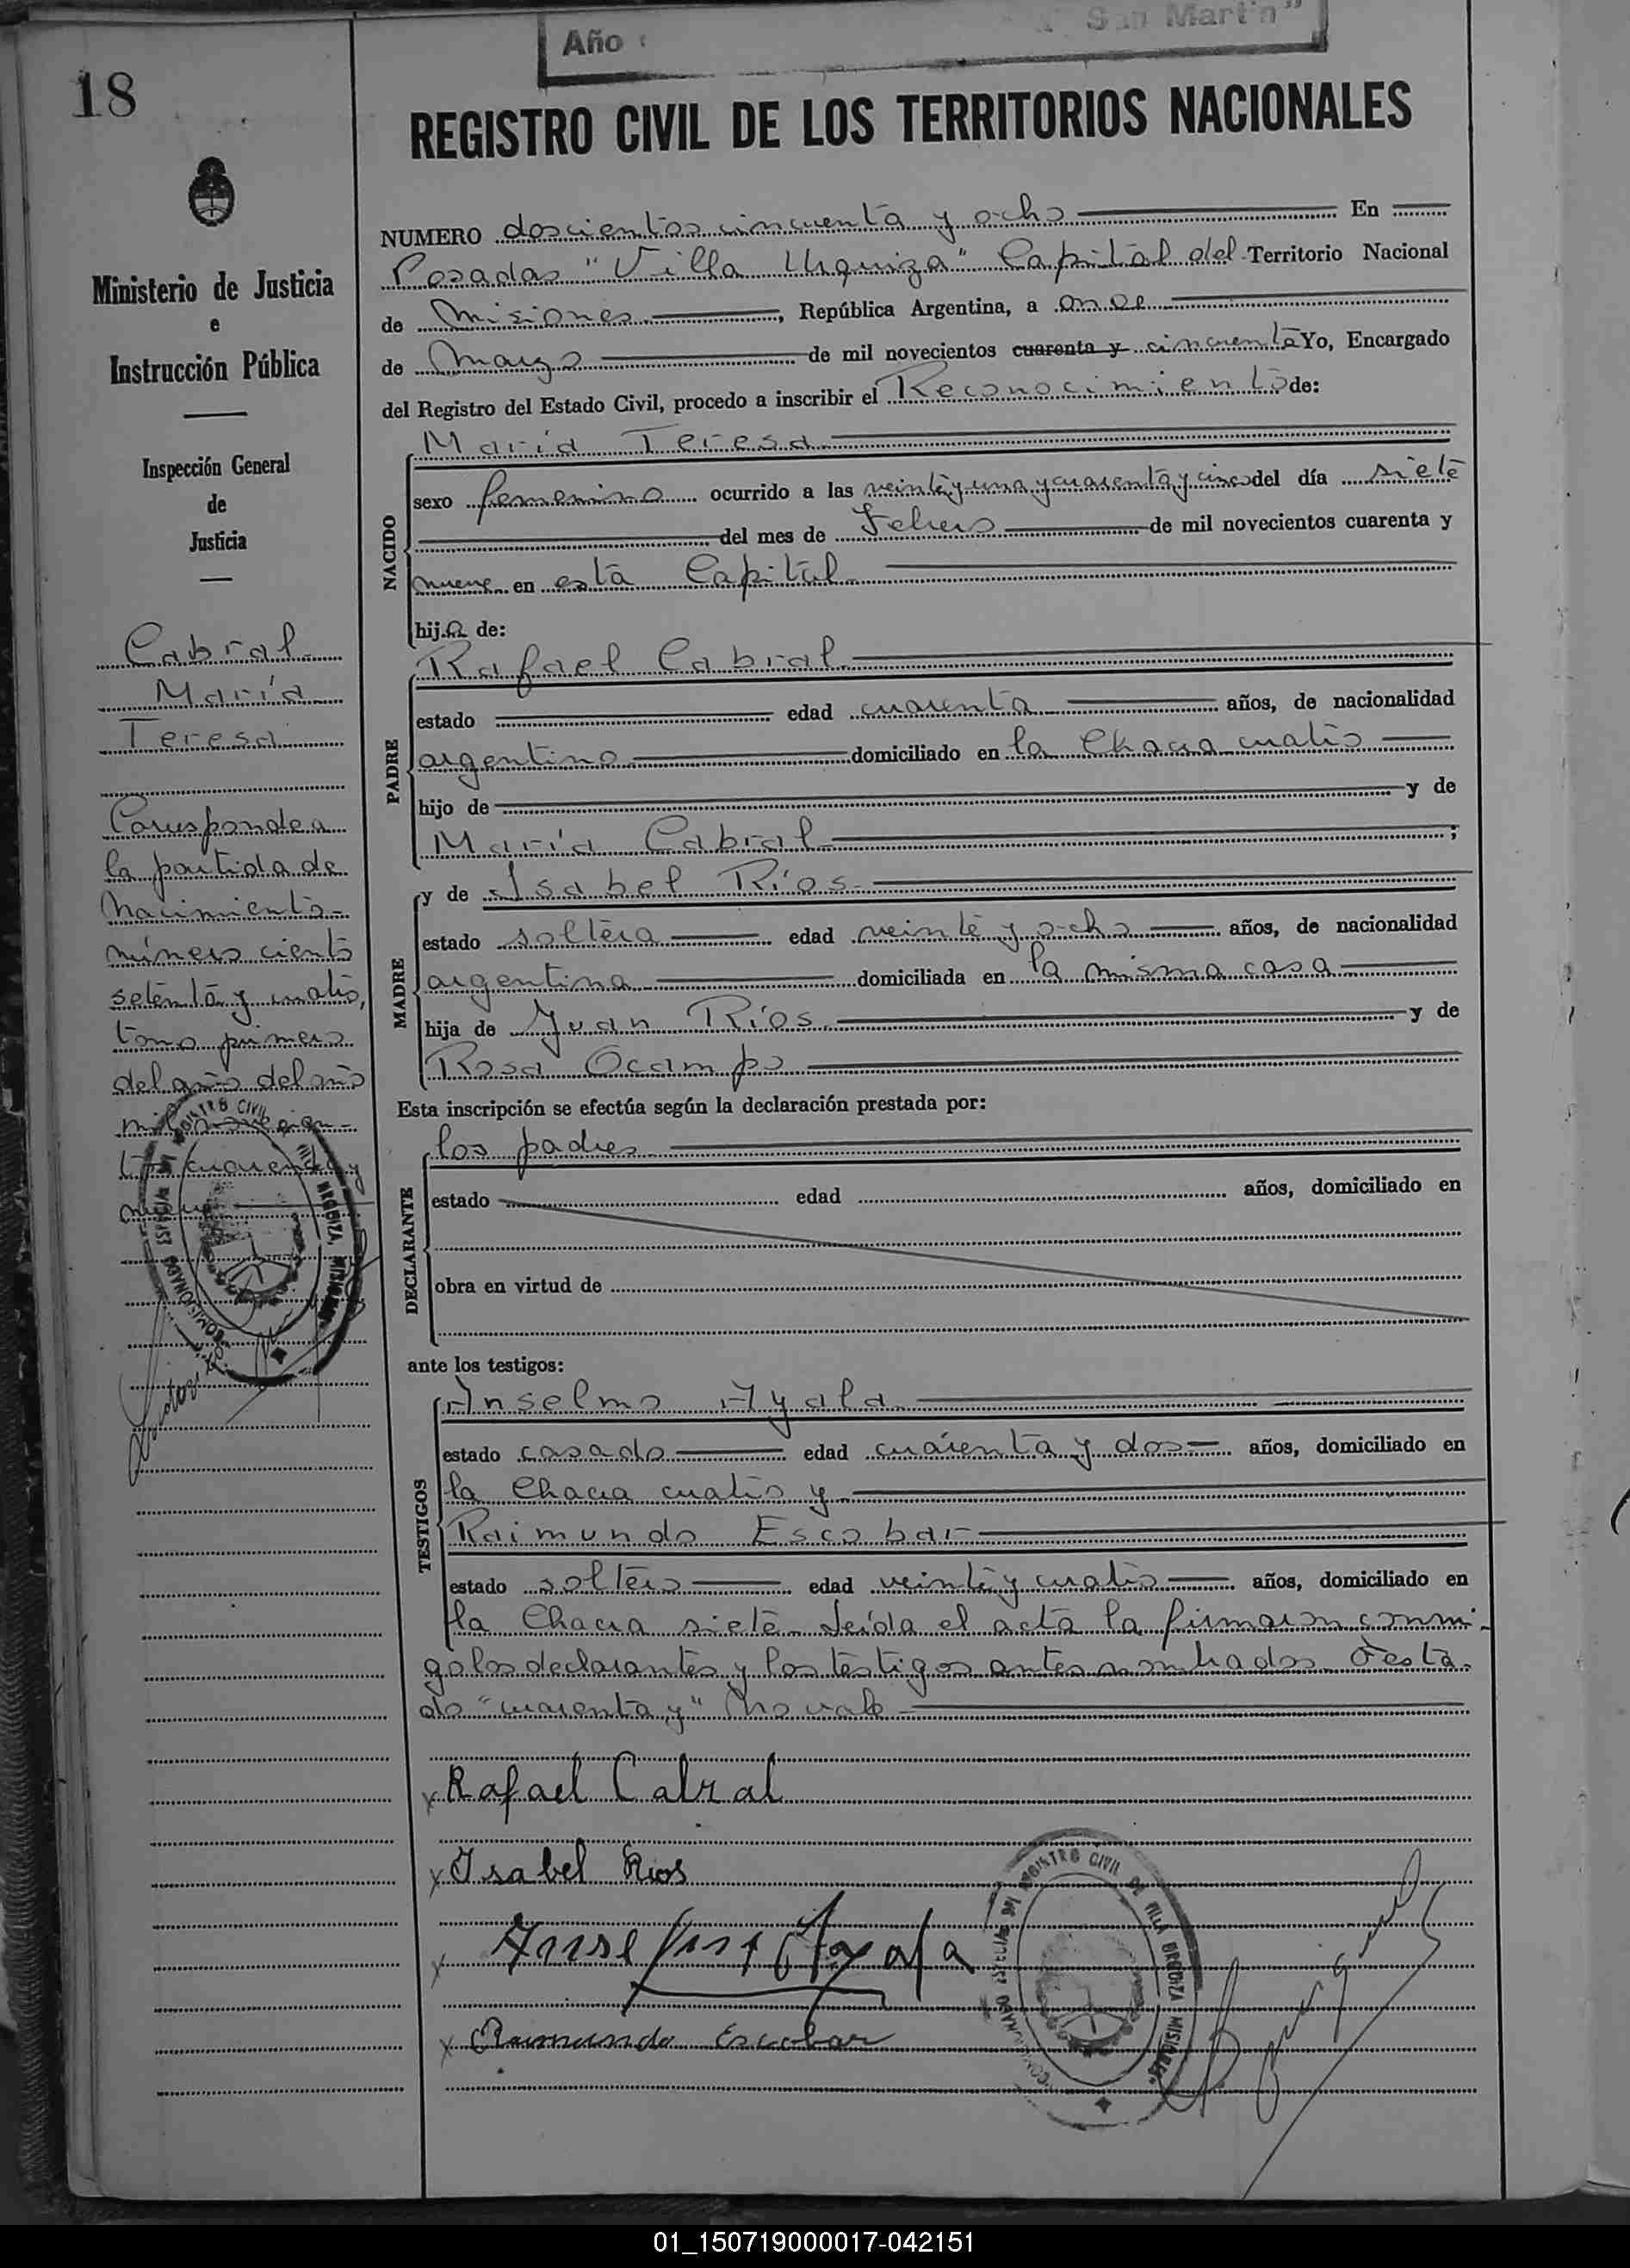 Año
San Martín"
18
REGISTRO CIVIL DE LOS TERRITORIOS NACIONALES
NUMERO doscientos cincuenta y ocho En
Posadas "Villa Urquiza" Capital del Territorio Nacional
de Misiones, República Argentina, a once
de Marzo de mil novecientos cuarenta y cincuenta Yo, Encargado
del Registro del Estado Civil, procedo a inscribir el Reconocimiento de:
Ministerio de Justicia
e
Instrucción Pública
Inspección General
de
Justicia
Cabral
María
Teresa
Corresponde a
la partida de
Nacimiento
número ciento
setenta y cuatro,
tomo primero
del año del año
mil novecien-
tos cuarenta y
nueve
NACIDO
María Teresa
sexo femenino ocurrido a las veinte y una y cuarenta y cinco del día siete
del mes de Febrero de mil novecientos cuarenta y
nueve en esta Capital
hija de:
PADRE
Rafael Cabral
estado edad cuarenta años, de nacionalidad
argentino domiciliado en la Chacra cuatro
hijo de y de
María Cabral;
MADRE
y de Isabel Ríos
estado soltera edad veinte y ocho años, de nacionalidad
argentina domiciliada en la misma casa
hija de Juan Ríos y de
Rosa Ocampo
Esta inscripción se efectúa según la declaración prestada por:
DECLARANTE
los padres
estado edad años, domiciliado en
obra en virtud de
ante los testigos:
TESTIGOS
Anselmo Ayala
estado casado edad cuarenta y dos años, domiciliado en
la Chacra cuatro y
Raimundo Escobar
estado soltero edad veinte y cuatro años, domiciliado en
la Chacra siete. Leída el acta la firmaron conmi-
go los declarantes y los testigos antes nombrados. Testa-
do "cuarenta y" No vale
x Rafael Cabral
x Isabel Rios
x Anselmo Ayala
x Raimundo Escobar
COMISIONADO ESPECIAL DEL REGISTRO CIVIL DE VILLA URQUIZA, MISIONES
COMISIONADO ESPECIAL DEL REGISTRO CIVIL DE VILLA URQUIZA MISIONES
01_150719000017-042151